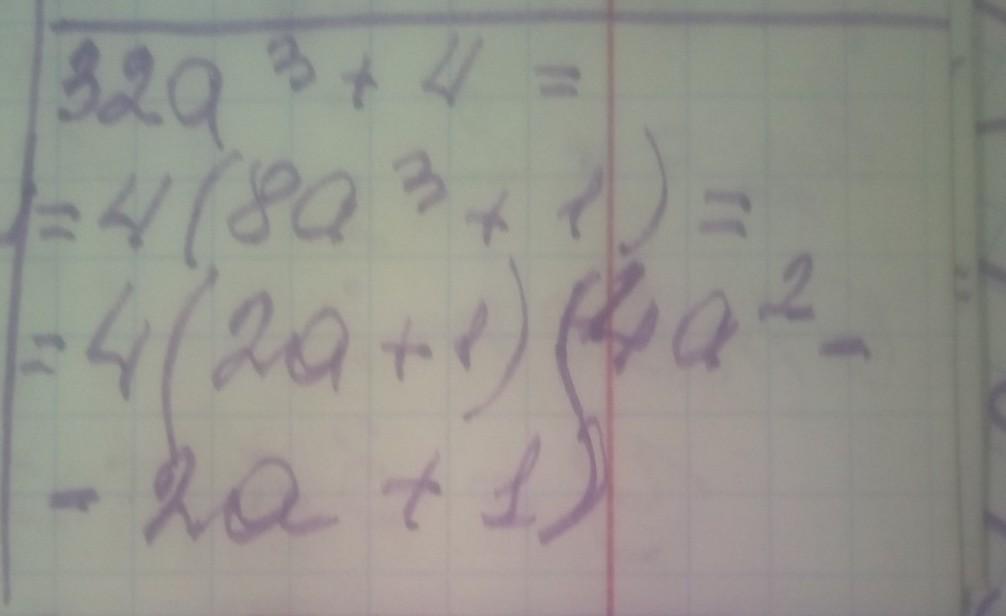 32a³ + 4 =
= 4(8a³ + 1) =
= 4(2a + 1)(4a² -
- 2a + 1)